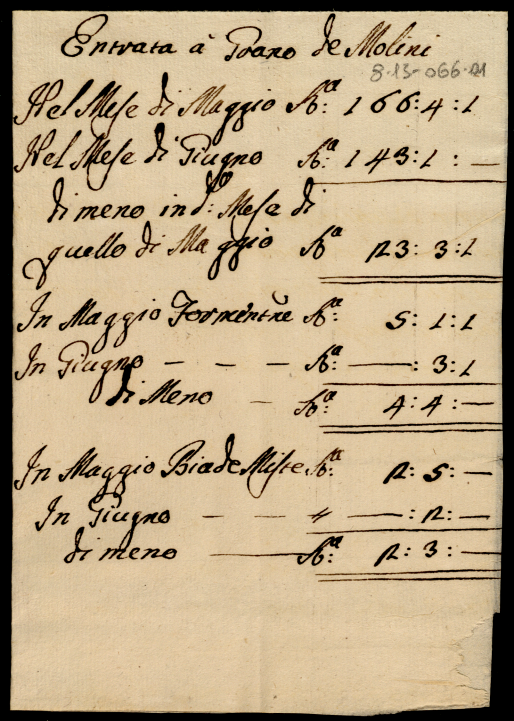 Entrata à Grano de Molini
8-13-066.21
Nel Mese di Maggio Sta: 166:4:1
Nel Mese di Giugno Sta: 143:1:—
di meno in do: Mese di
quello di Maggio Sta 23:3:1
In Maggio Formentne Sta: 5:1:1
In Giugno — — — Sta: —:3:1
di Meno — Sta: 4:4:—
In Maggio Biade Miste Sta: 2:5:—
In Giugno — — " —:2:—
di meno — Sta: 2:3:—